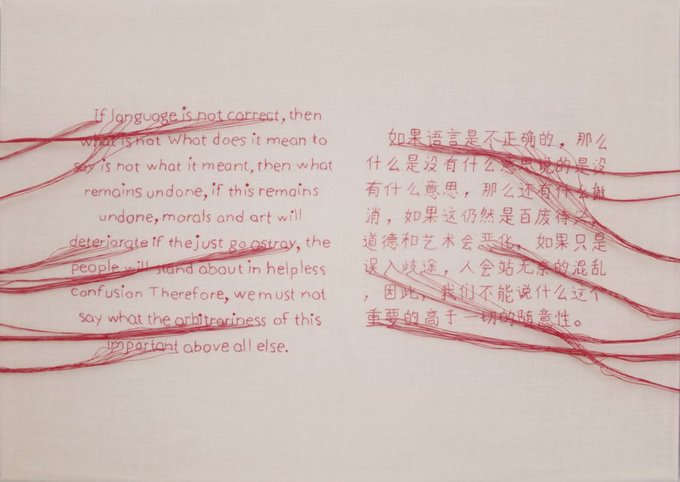 If language is not correct, then
what is not What does it mean to
say is not what it meant, then what
remains undone, if this remains
undone, morals and art will
deteriorate if the just go astray, the
people will stand about in helpless
confusion Therefore, we must not
say what the arbitrariness of this
important above all else.
如果语言是不正确的，那么
什么是没有什么意思说的是没
有什么意思，那么还有什么撤
消，如果这仍然是百废待兴，
道德和艺术会恶化，如果只是
误入歧途，人会站无奈的混乱
，因此，我们不能说什么这个
重要的高于一切的随意性。